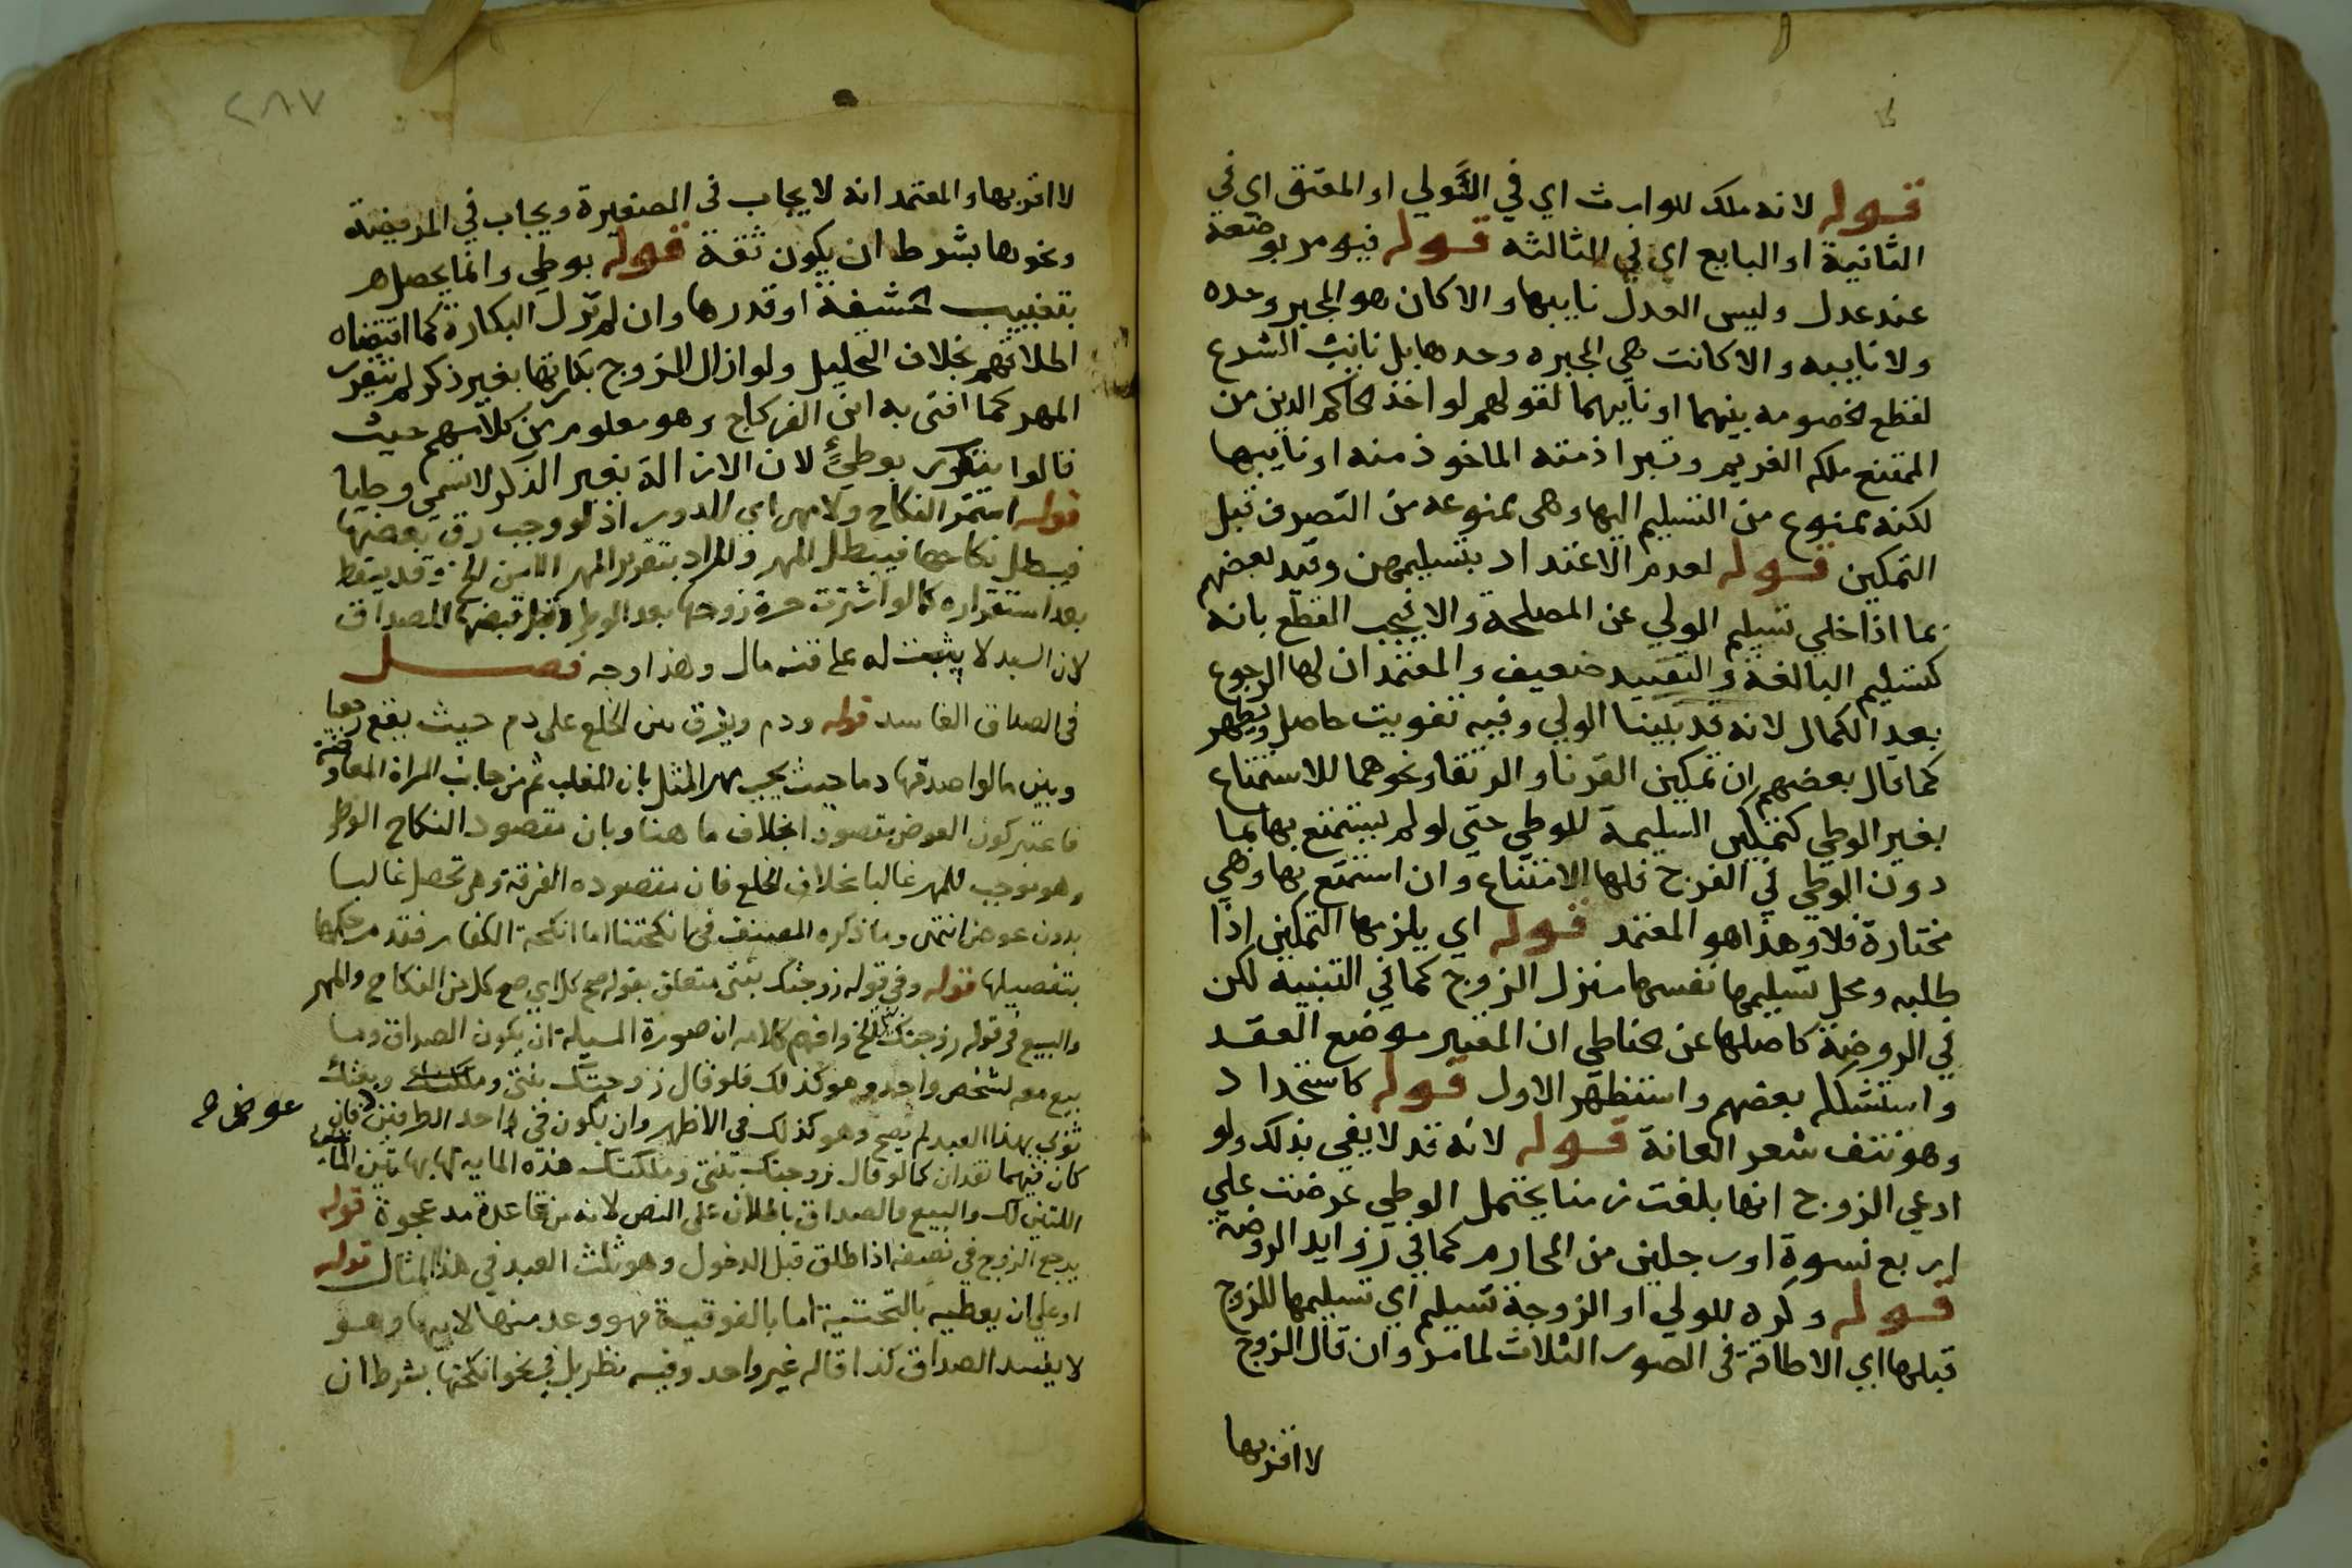 قوله لانه ملك للوارث اي في التولي او المعتق اي في
الثانية او البايع اي في الثالثه قوله فيومر بوضعه
عند عدل وليس العدل نايبها والا كان هو المجبر وحده
ولا نايبه والا كانت هي المجبره وحدها بل نايب الشرع
لقطع الخصومه بينهما او نايبهما لقولهم لو اخذ الحاكم الدين من
الممتنع ملكه الغريم وتبرا ذمته الماخوذ منه او نايبها
لكنه ممنوع من التسليم اليها وهي ممنوعه من التصرف قبل
التمكين قوله لعدم الاعتداد بتسليمهن وقيد بعضهم
بما اذا خلي تسليم الولي عن المصلحة والا فيجب القطع بانه
كتسليم البالغة والتقييد ضعيف والمعتمد ان لها الرجوع
بعد الكمال لانه قد يليها الولي وفيه تفويت حاصل ويظهر
كما قال بعضهم ان تمكين القرنا والرتقا ونحوهما للاستمتاع
بغير الوطي كتمكين السليمة للوطي حتي لو لم يستمتع بها بما
دون الوطي في الفرج فلها الامتناع وان استمتع بها وهي
مختارة فلا وهذا هو المعتمد قوله اي يلزمها التمكين اذا
طلبه ومحل تسليمها نفسها منزل الزوج كما في التنبيه لكن
في الروضة كاصلها عن الحناطي ان المعتبر موضع العقد
واستشكله بعضهم واستظهر الاول قوله كاستحداد
وهو نتف شعر العانة قوله لانه قد لا يفي بذلك ولو
ادعي الزوج انها بلغت زمنا يحتمل الوطي عرضت علي
اربع نسوة او رجلين من المحارم كما في زوايد الروضة
قوله وكره للولي او الزوجة تسليم اي تسليمها للزوج
قبلها اي الاطاقة في الصور الثلاث لما مر وان قال الزوج
لا اقربها
٢٨٧
لا اقربها والمعتمد انه لا يجاب في الصغيرة ويجاب في المريضة
ونحوها بشرط ان يكون ثقة قوله بوطي وانما يحصل
بتغييب حشفة او قدرها وان لم تزل البكارة كما اقتضاه
اطلاقهم بخلاف التحليل ولو ازال الزوج بكارتها بغير ذكر لم يتقرر
المهر كما افتي به ابن الفركاح وهو معلوم من كلامهم حيث
قالوا يتقرر بوطئ لان الازالة بغير الذكر لا تسمي وطيا
قوله استمر النكاح ولا مهر اي للدور اذ لو وجب رق بعضها
فيبطل نكاحها فيبطل المهر والمراد بتقرير المهر الامن الخ وقد يسقط
بعد استقراره كما لو اشترت حرة زوجها بعد الوطي وقبل قبضها الصداق
لان السيد لا يثبت له على قنه مال وهذا وجه فصل
في الصداق الفاسد قوله ودم ويفرق بين الخلع على دم حيث يقع رجعيا
وبين ما لو اصدقها دما حيث يجب مهر المثل بان المغلب ثم من جانب المراة المعاوضة
فاعتبر كون العوض مقصودا بخلاف ما هنا وبان مقصود النكاح الوطي
وهو موجب للمهر غالبا بخلاف الخلع فان مقصوده الفرقة وهي تحصل غالبا
بدون عوض انتهي وما ذكره المصنف في انكحتنا اما انكحة الكفار فقد مر حكمها
بتفصيلها قوله وفي قوله زوجتك بنتي متعلق بقوله صح كل اي صح كل من النكاح والمهر
والبيع في قوله زوجتك الخ وافهم كلامه ان صورة المسيلة ان يكون الصداق وما
بيع معه لشخص واحد وهو كذلك فلو قال زوجتك بنتي وملكتك وبعتك
ثوبي بهذا العبد لم يصح وهو كذلك في الاظهر وان يكون في احد الطرفين فان
عوض صح
كان فيهما نقدان كما لو قال زوجتك بنتي وملكتك هذه الماية لها بهاتين المايتين
اللتين لك والبيع والصداق باطلان على النص لانه من قاعدة مد عجوة قوله
يرجع الزوج في نصيفه اذا طلق قبل الدخول وهو ثلث العبد في هذا المثال قوله
او علي ان يعطيه بالتحتية اما بالفوقية فهو وعد منها لابيها وهو
لا يفسد الصداق كذا قاله غير واحد وفيه نظر بل في نحو انكحتها بشرط ان